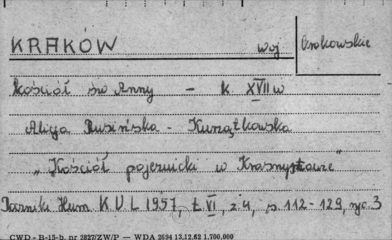 KRAKÓW woj krakowskie
Kościół św Anny – k XVII w
Alicja Rusińska - Kurzątkowska
„Kościół pojezuicki w Krasnymstawie"
Roczniki Hum. K.U.L 1957, t VI, z.4, s. 112-129, ryc. 3
CWD - B-15-b. nr 2827/ZW/P — WDA 2694 13.12.62 1.700.000